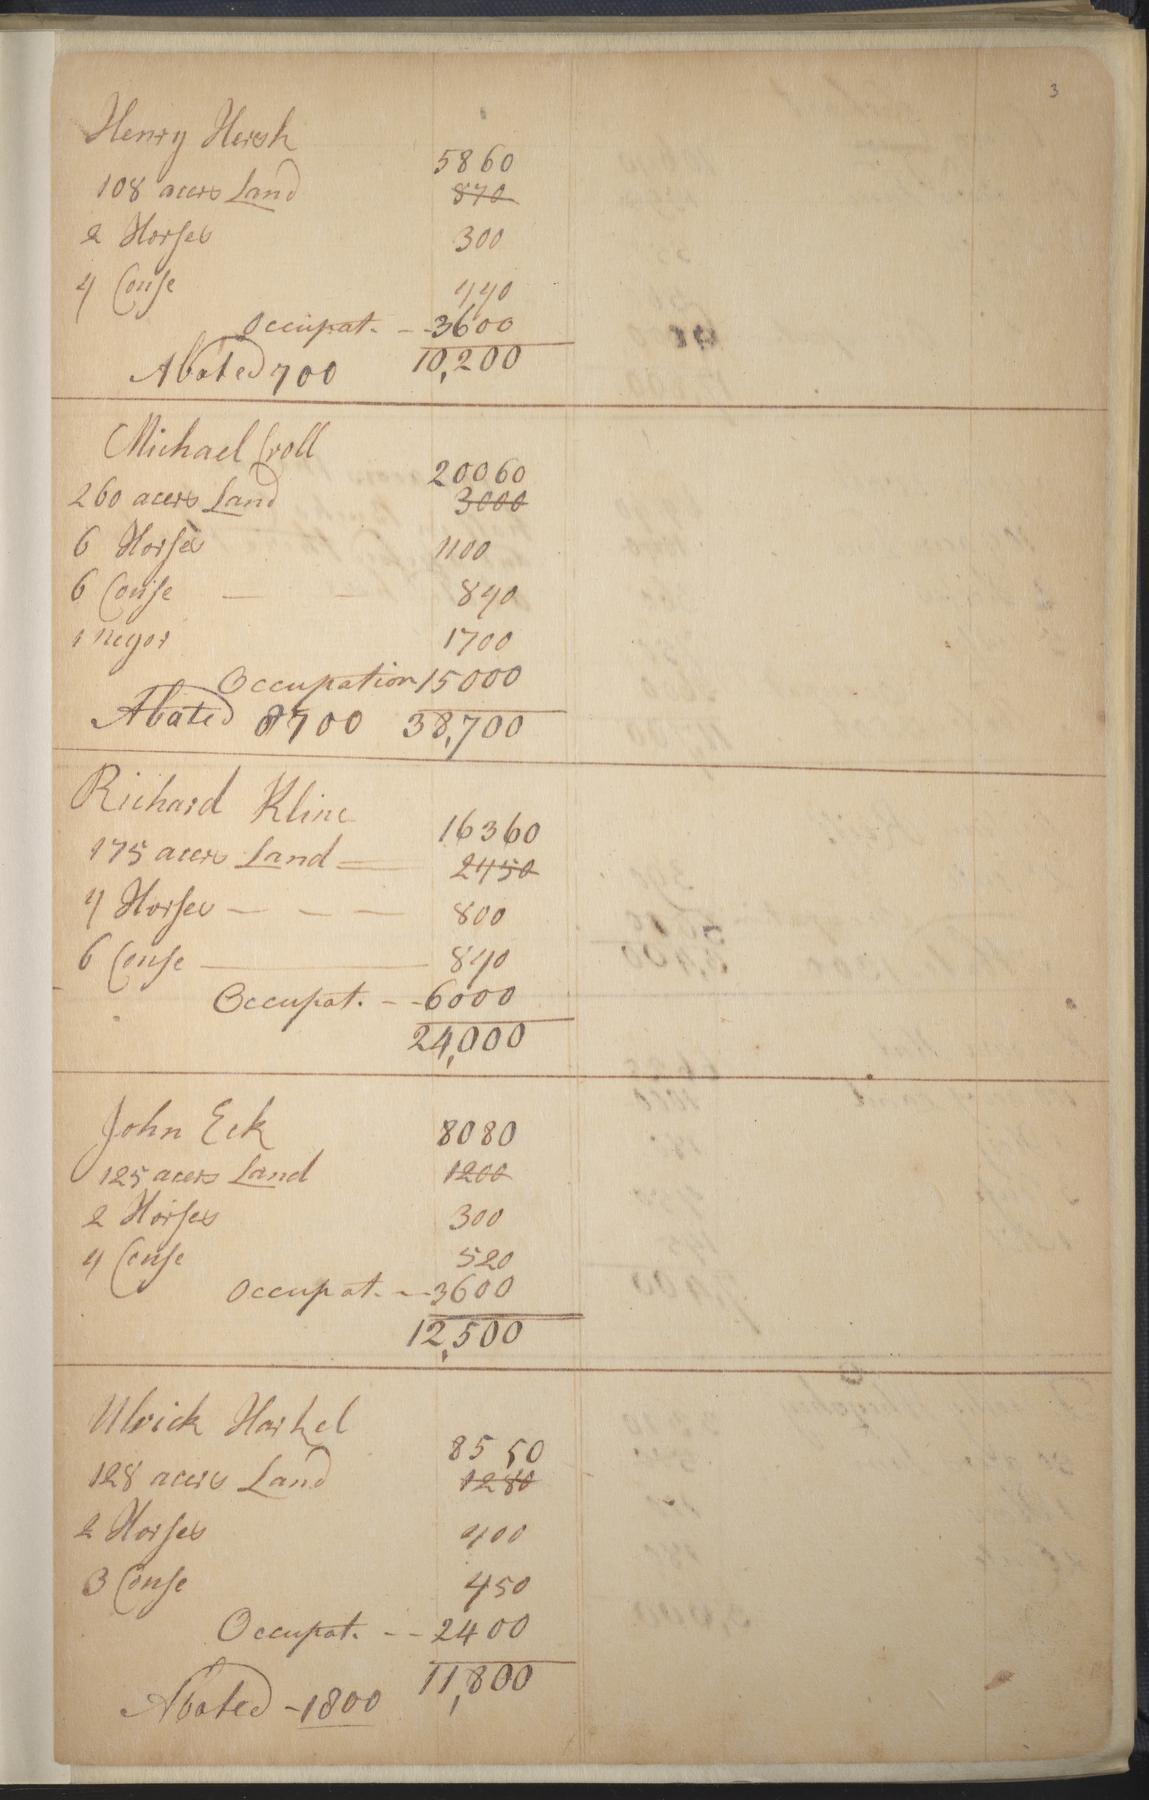 3
Henry Hersh
5860
108 acers Land 870
2 Horses 300
4 Couse 440
Occupat. -- 3600
Abated 700 10,200
Michael Croll
20060
260 acers Land 3000
6 Horses 1100
6 Couse — - 840
1 negor 1700
Occupation 15000
Abated 8700 38,700
Richard Kline
16360
175 acers Land — 2450
4 Horses — — — 800
6 Couse — 840
Occupat. -- 6000
24,000
John Eck 8080
125 acers Land 1200
2 Horses 300
4 Couse 520
Occupat. -- 3600
12,500
Ulrick Harkel
8550
128 acers Land 1280
2 Horses 400
3 Couse 450
Occupat. -- 2400
11,800
Abated - 1800